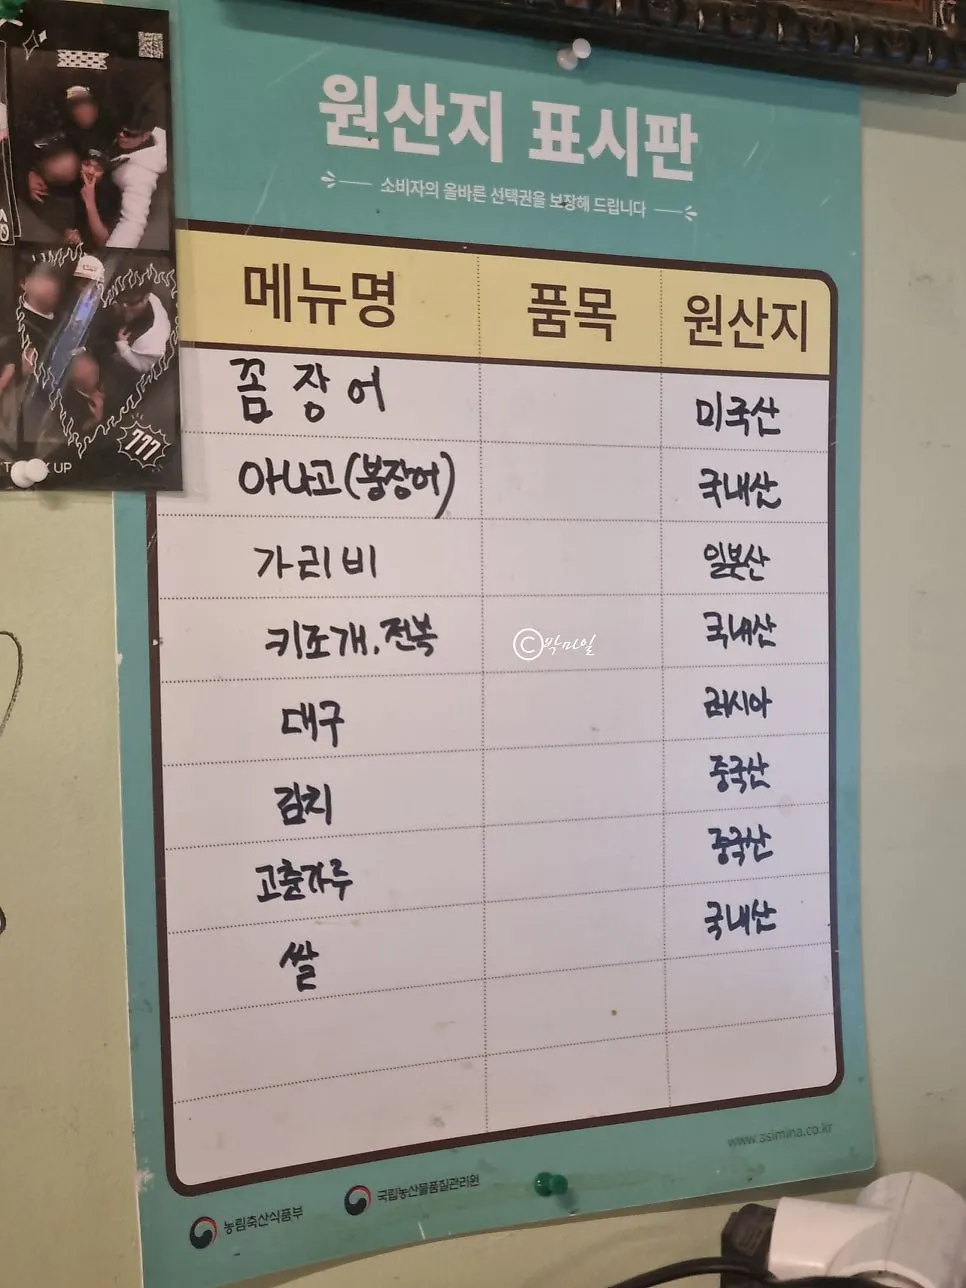 원산지 표시판
소비자의 올바른 선택권을 보장해 드립니다
메뉴명 품목 원산지
꼼장어 미국산
아나고(붕장어) 국내산
가리비 일본산
키조개.전복 국내산
대구 러시아
김치 중국산
고춘가루 중국산
쌀 국내산
©박미일
777
UP
www.asimina.co.kr
농림축산식품부
국립농산물품질관리원